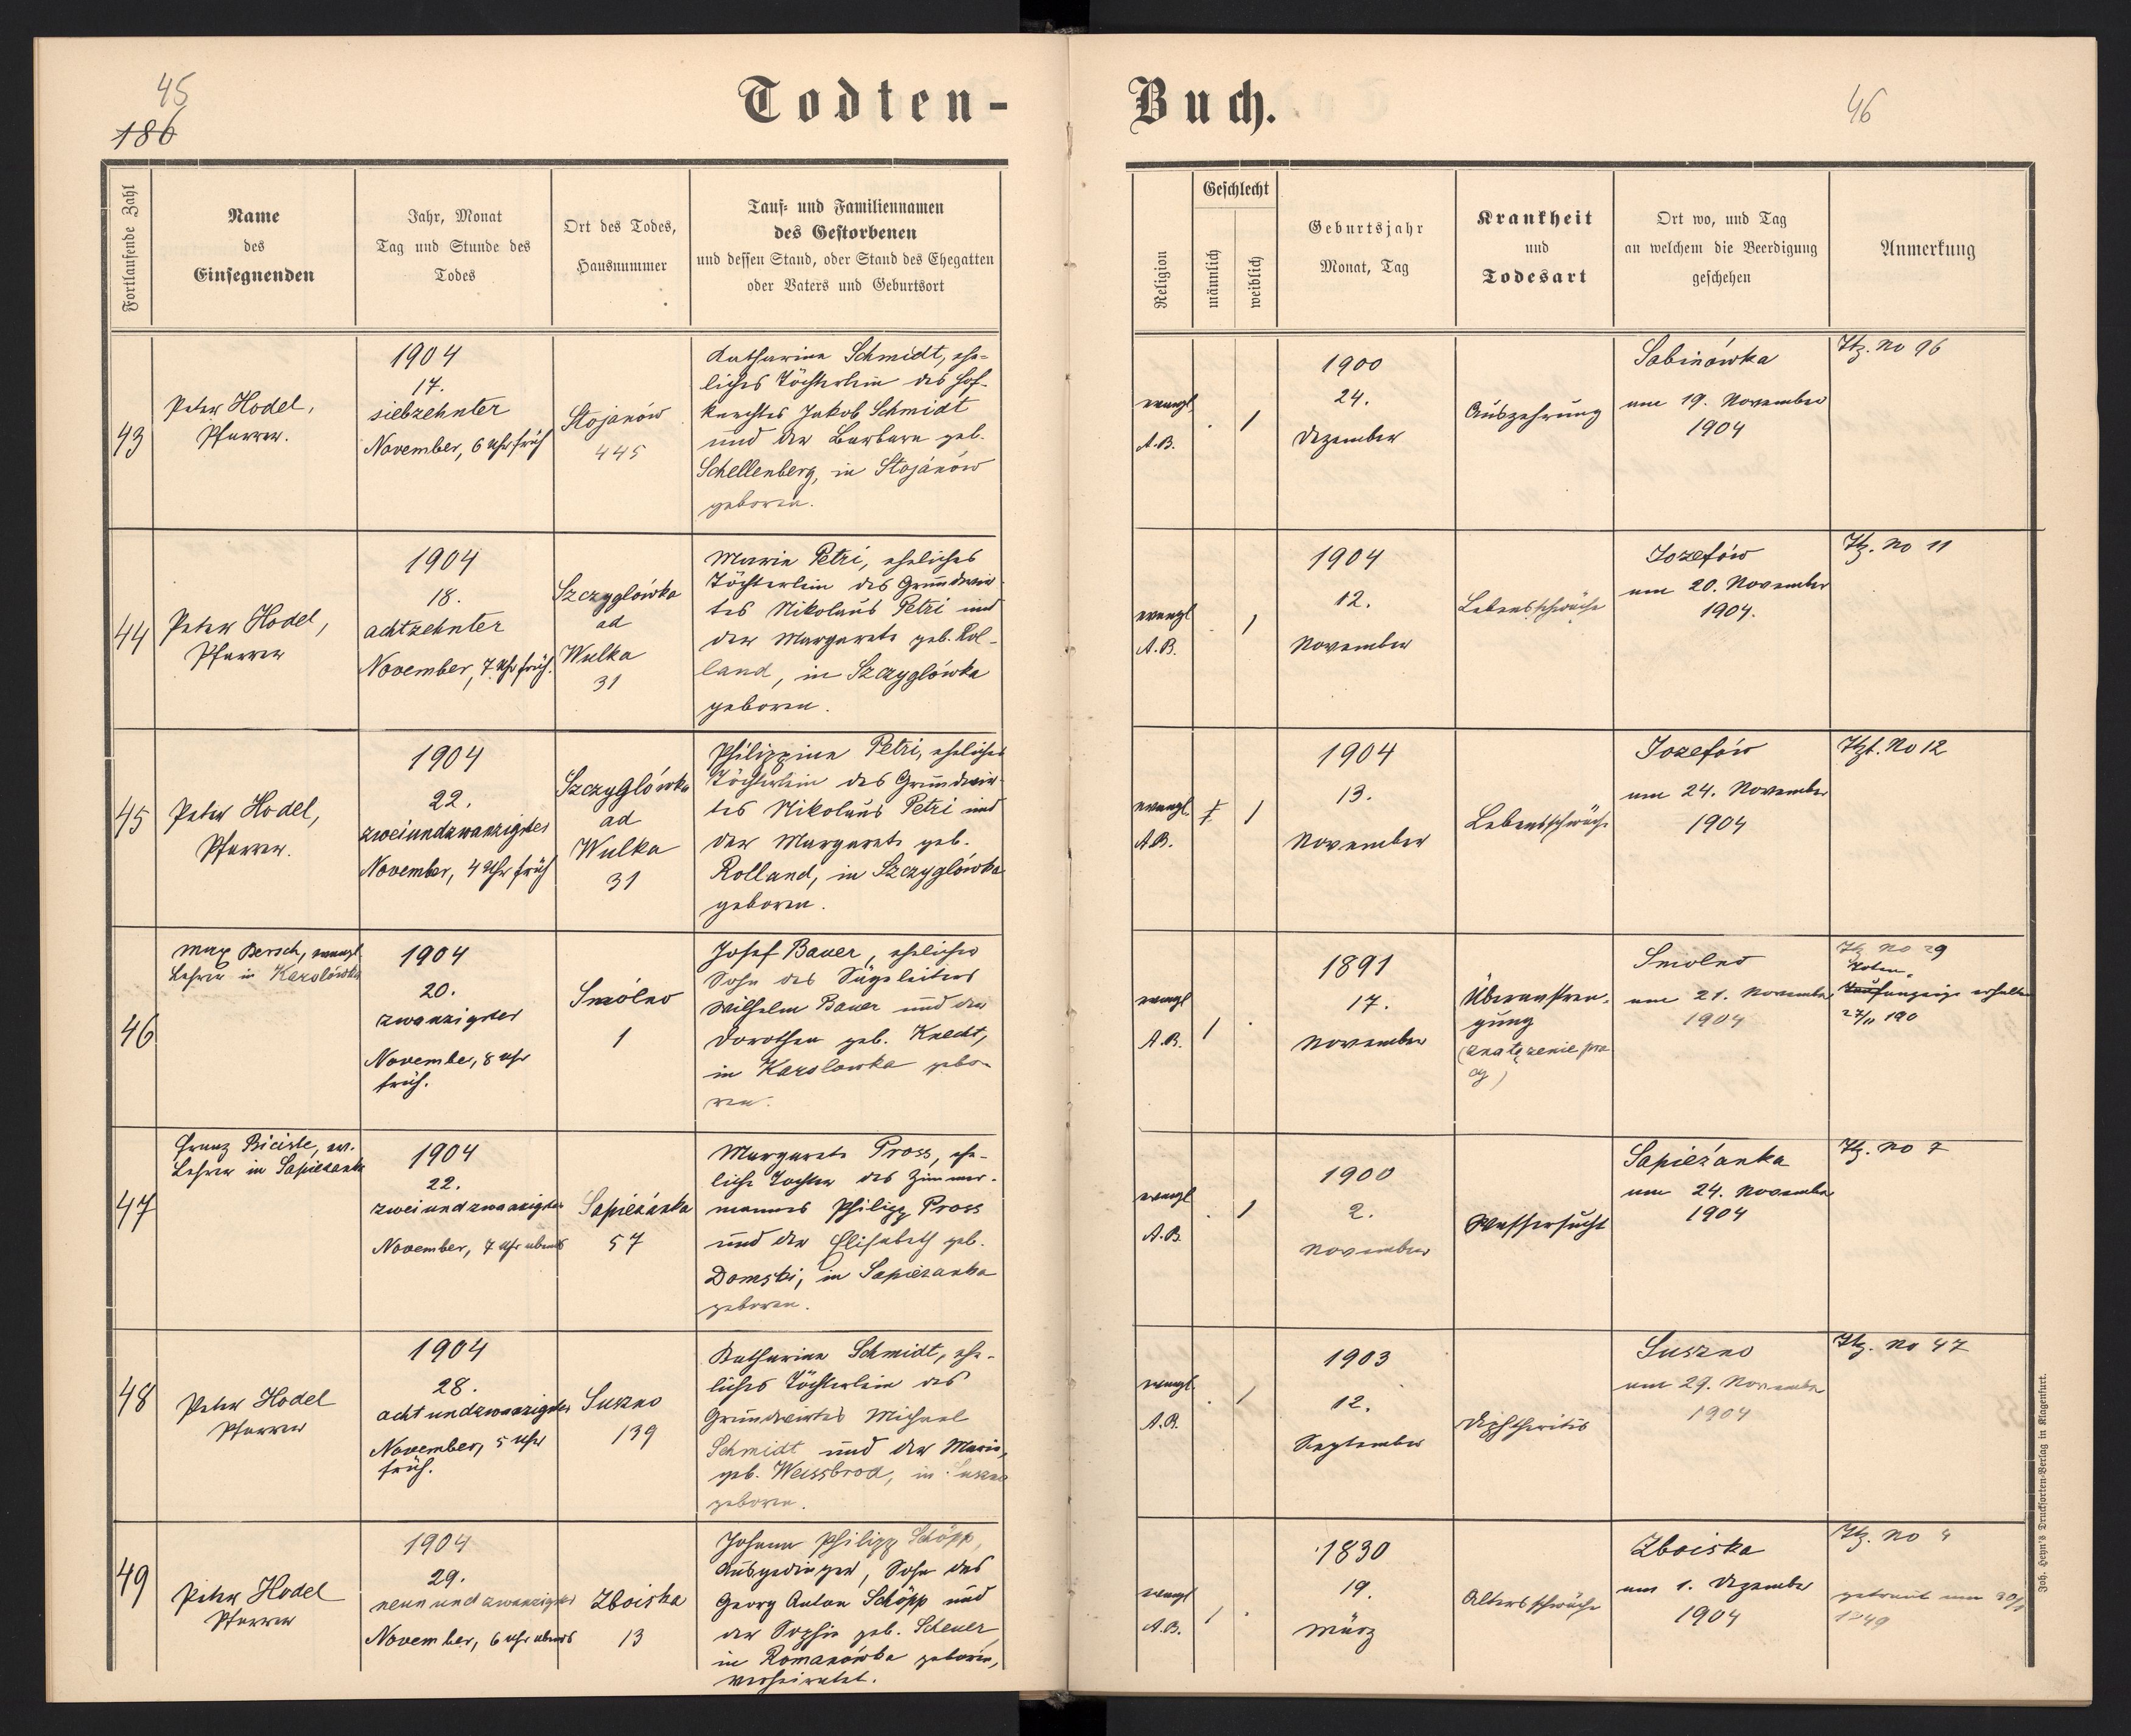 45
186
Todten-
Buch.
46
Fortlaufende Zahl
Name
des
Einsegnenden
Jahr, Monat
Tag und Stunde des
Todes
Ort des Todes,
Hausnummer
Tauf- und Familiennamen
des Gestorbenen
und dessen Stand, oder Stand des Ehegatten
oder Vaters und Geburtsort
Religion
Geschlecht
männlich
weiblich
Geburtsjahr
Monat, Tag
Krankheit
und
Todesart
Ort wo, und Tag
an welchem die Beerdigung
geschehen
Anmerkung
43
Peter Hodel,
Pfarrer.
1904
17.
siebzehnter
November, 6 Uhr früh
Stojanów
445
Katharina Schmidt, ehe-
liches Töchterlein des Hof-
knechtes Jakob Schmidt
und der Barbara geb.
Schellenberg, in Stojanów
geboren.
evangl.
A.B.
1
1900
24.
Dezember
Auszehrung
Sabinówka
am 19. November
1904
Itz. No 96
44
Peter Hodel,
Pfarrer
1904
18.
achtzehnter
November, 7 Uhr früh.
Szczyglówka
ad
Wulka
31
Maria Petri, eheliches
Töchterlein des Grundwir-
tes Nikolaus Petri und
der Margarete geb. Rol-
land, in Szczyglówka
geboren.
evangl
A.B.
1
1904
12.
November
Lebensschwäche
Jozefów
am 20. November
1904.
Itz. No 11
45
Peter Hodel,
Pfarrer.
1904
22.
zweiundzwanzigster
November, 4 Uhr früh
Szczyglówka
ad
Wulka
31
Philippine Petri, eheliches
Töchterlein des Grundwir-
tes Nikolaus Petri und
der Margarete geb.
Rolland, in Szczyglówka
geboren.
evangl.
A.B.
1
1904
13.
November
Lebensschwäche
Jozefów
am 24. November
1904
No 12
46
Max Bersch, evangl.
Lehrer in Karolówka
1904
20.
zwanzigster
Novembe, 8 Uhr
früh.
Smólno
1
Josef Bauer, ehelicher
Sohn des Sägeleiters
Wilhelm Bauer und der
Dorothea geb. Knecht,
in Karolowka gebo-
ren.
evangl
A.B.
1
1891
17.
November
Überanstren-
gung
Smolno
am 21. November
1904
Itz No 29
Toten-
anzeige erhalten
27/11 190
47
Franz Biciste, ev.
Lehrer in Sapiezanka
1904
22.
zweiundzwanzigster
November, 7 Uhr abends
Sapiezánka
57
Margarete Pross, ehe-
liche Tochter des Zimmer-
mannes Philipp Pross
und der Elisabeth geb.
Domski, in Sapiezanka
geboren.
evangl
A.B.
1
1900
2.
November
Wassersucht
Sapieżanka
am 24. November
1904
Itz. No 7
48
Peter Hodel
Pfarrer
1904
28.
achtundzwanzigster
November, 5 Uhr
früh.
Suszno
139
Katharina Schmidt, ehe-
liches Töchterlein des
Grundwirtes Michael
Schmidt und der Maria,
geb. Weissbrod, in Suszno
geboren.
evangl.
A.B.
1
1903
12.
September
Diphtheritis
Suszno
am 29. November
1904
Itz. No 47
49
Peter Hodel
Pfarrer
1904
29.
neunundzwanzigster
November, 6 Uhr abends
Zboiska
13
Johann Philipp Schöpp,
Ausgedinger, Sohn des
Georg Anton Schöpp und
der Sophie geb. Scheuer,
in Romanówka geboren,
verheiratet.
evangl
A.B.
1
1830
19.
März
Altersschwäche
Zboiska
am 1. Dezember
1904
Itz. No 4
getraut am
1849
Joh. Heyn's Drucksorten-Verlag in Klagenfurt.